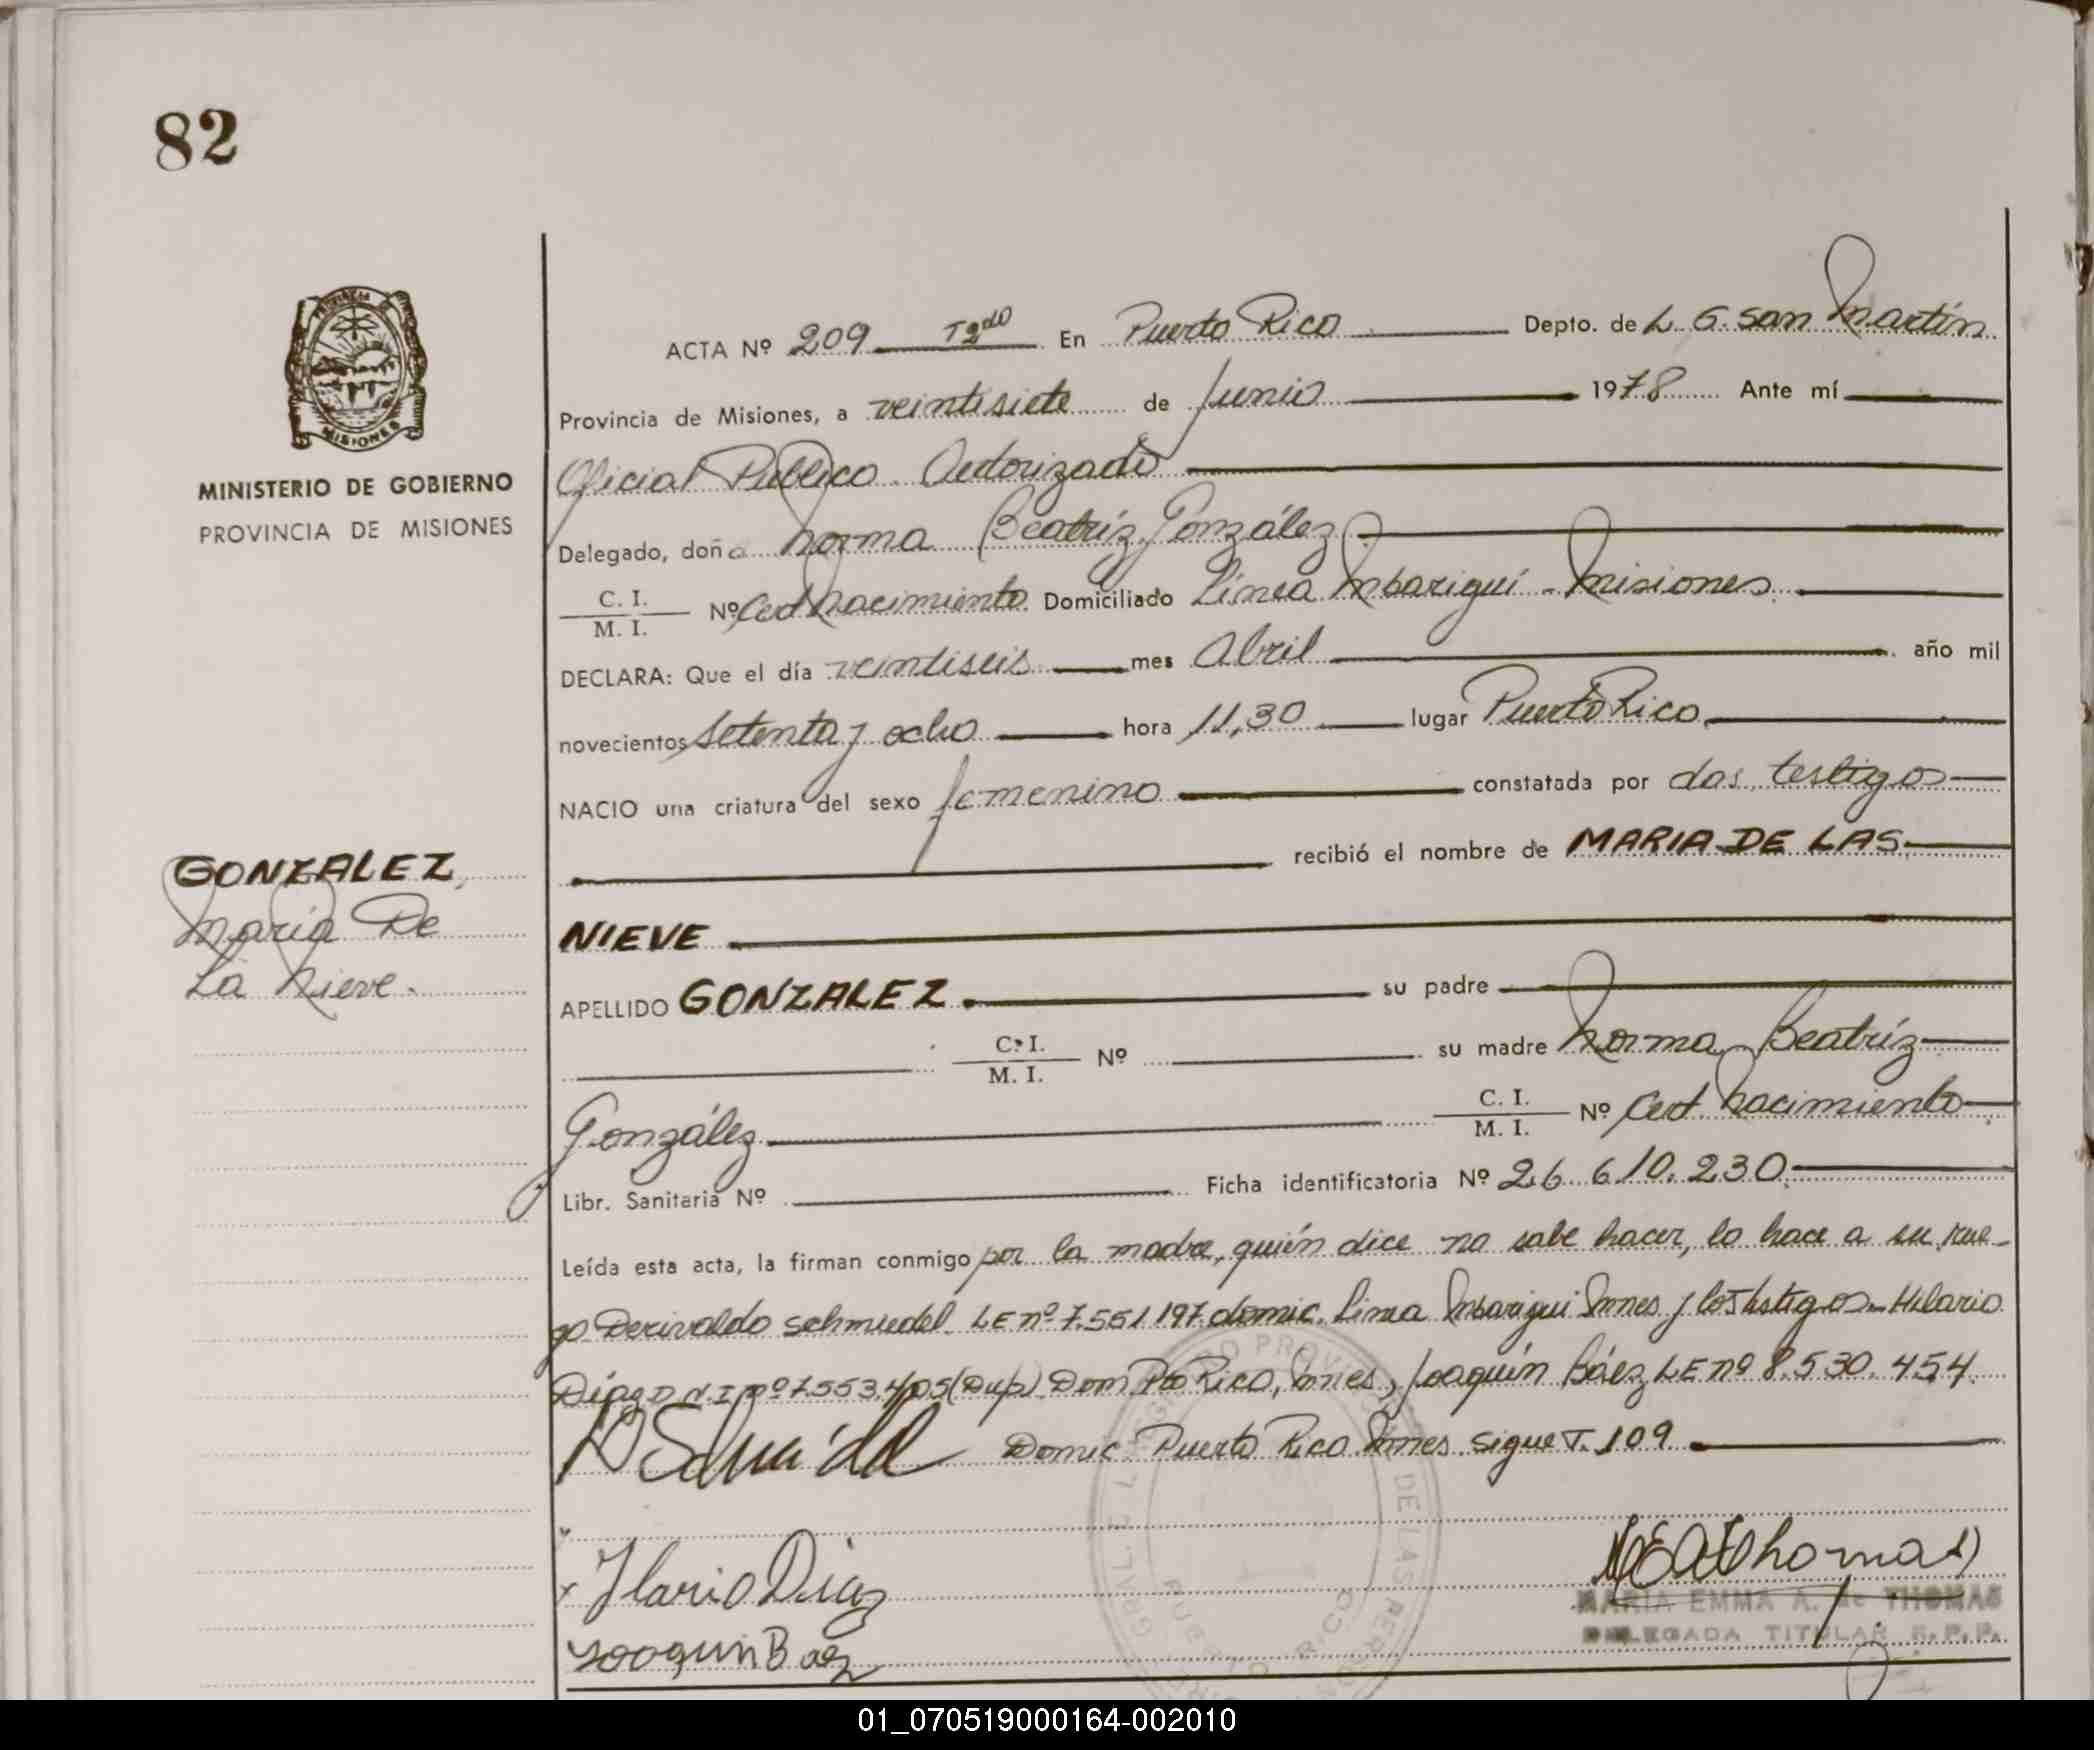 82
PROVINCIA
MISIONES
MINISTERIO DE GOBIERNO
PROVINCIA DE MISIONES
GONZALEZ,
María De
La Nieve.
ACTA Nº 209 T2do En Puerto Rico Depto. de L. G. San Martín
Provincia de Misiones, a veintisiete de Junio 1978 Ante mí
Oficial Público Autorizado
Delegado, doña Norma Beatríz González
C. I.
M. I. Nº Cert Nacimiento Domiciliado Línea Mbariguí - Misiones
DECLARA: Que el día veintiseis mes Abril año mil
novecientos setenta y ocho hora 11,30 lugar Puerto Rico
NACIO una criatura del sexo femenino constatada por dos testigos
recibió el nombre de MARIA DE LAS
NIEVE
APELLIDO GONZALEZ su padre
C. I.
M. I. Nº su madre Norma Beatríz
González C. I.
M. I. Nº Cert. Nacimiento
Libr. Sanitaria Nº Ficha identificatoria Nº 26 610.230
Leída esta acta, la firman conmigo por la madre, quién dice no sabe hacer, lo hace a su rue-
go Derivaldo Schmiedel LE nº 7.561 197 domic. Linea Mbarigui Mnes y los testigos - Hilario
Díaz D.N.I nº 7.553.405 (Dup) Dom Pto Rico, Mnes, Joaquín Báez LE nº 8.530.454
Domic Puerto Rico Mnes sigue T. 109
Ilario Diaz
Joaquin Baez
MEAThomas
MARIA EMMA A. de THOMAS
DELEGADA TITULAR R. P. P.
PUERTO RICO
01_070519000164-002010